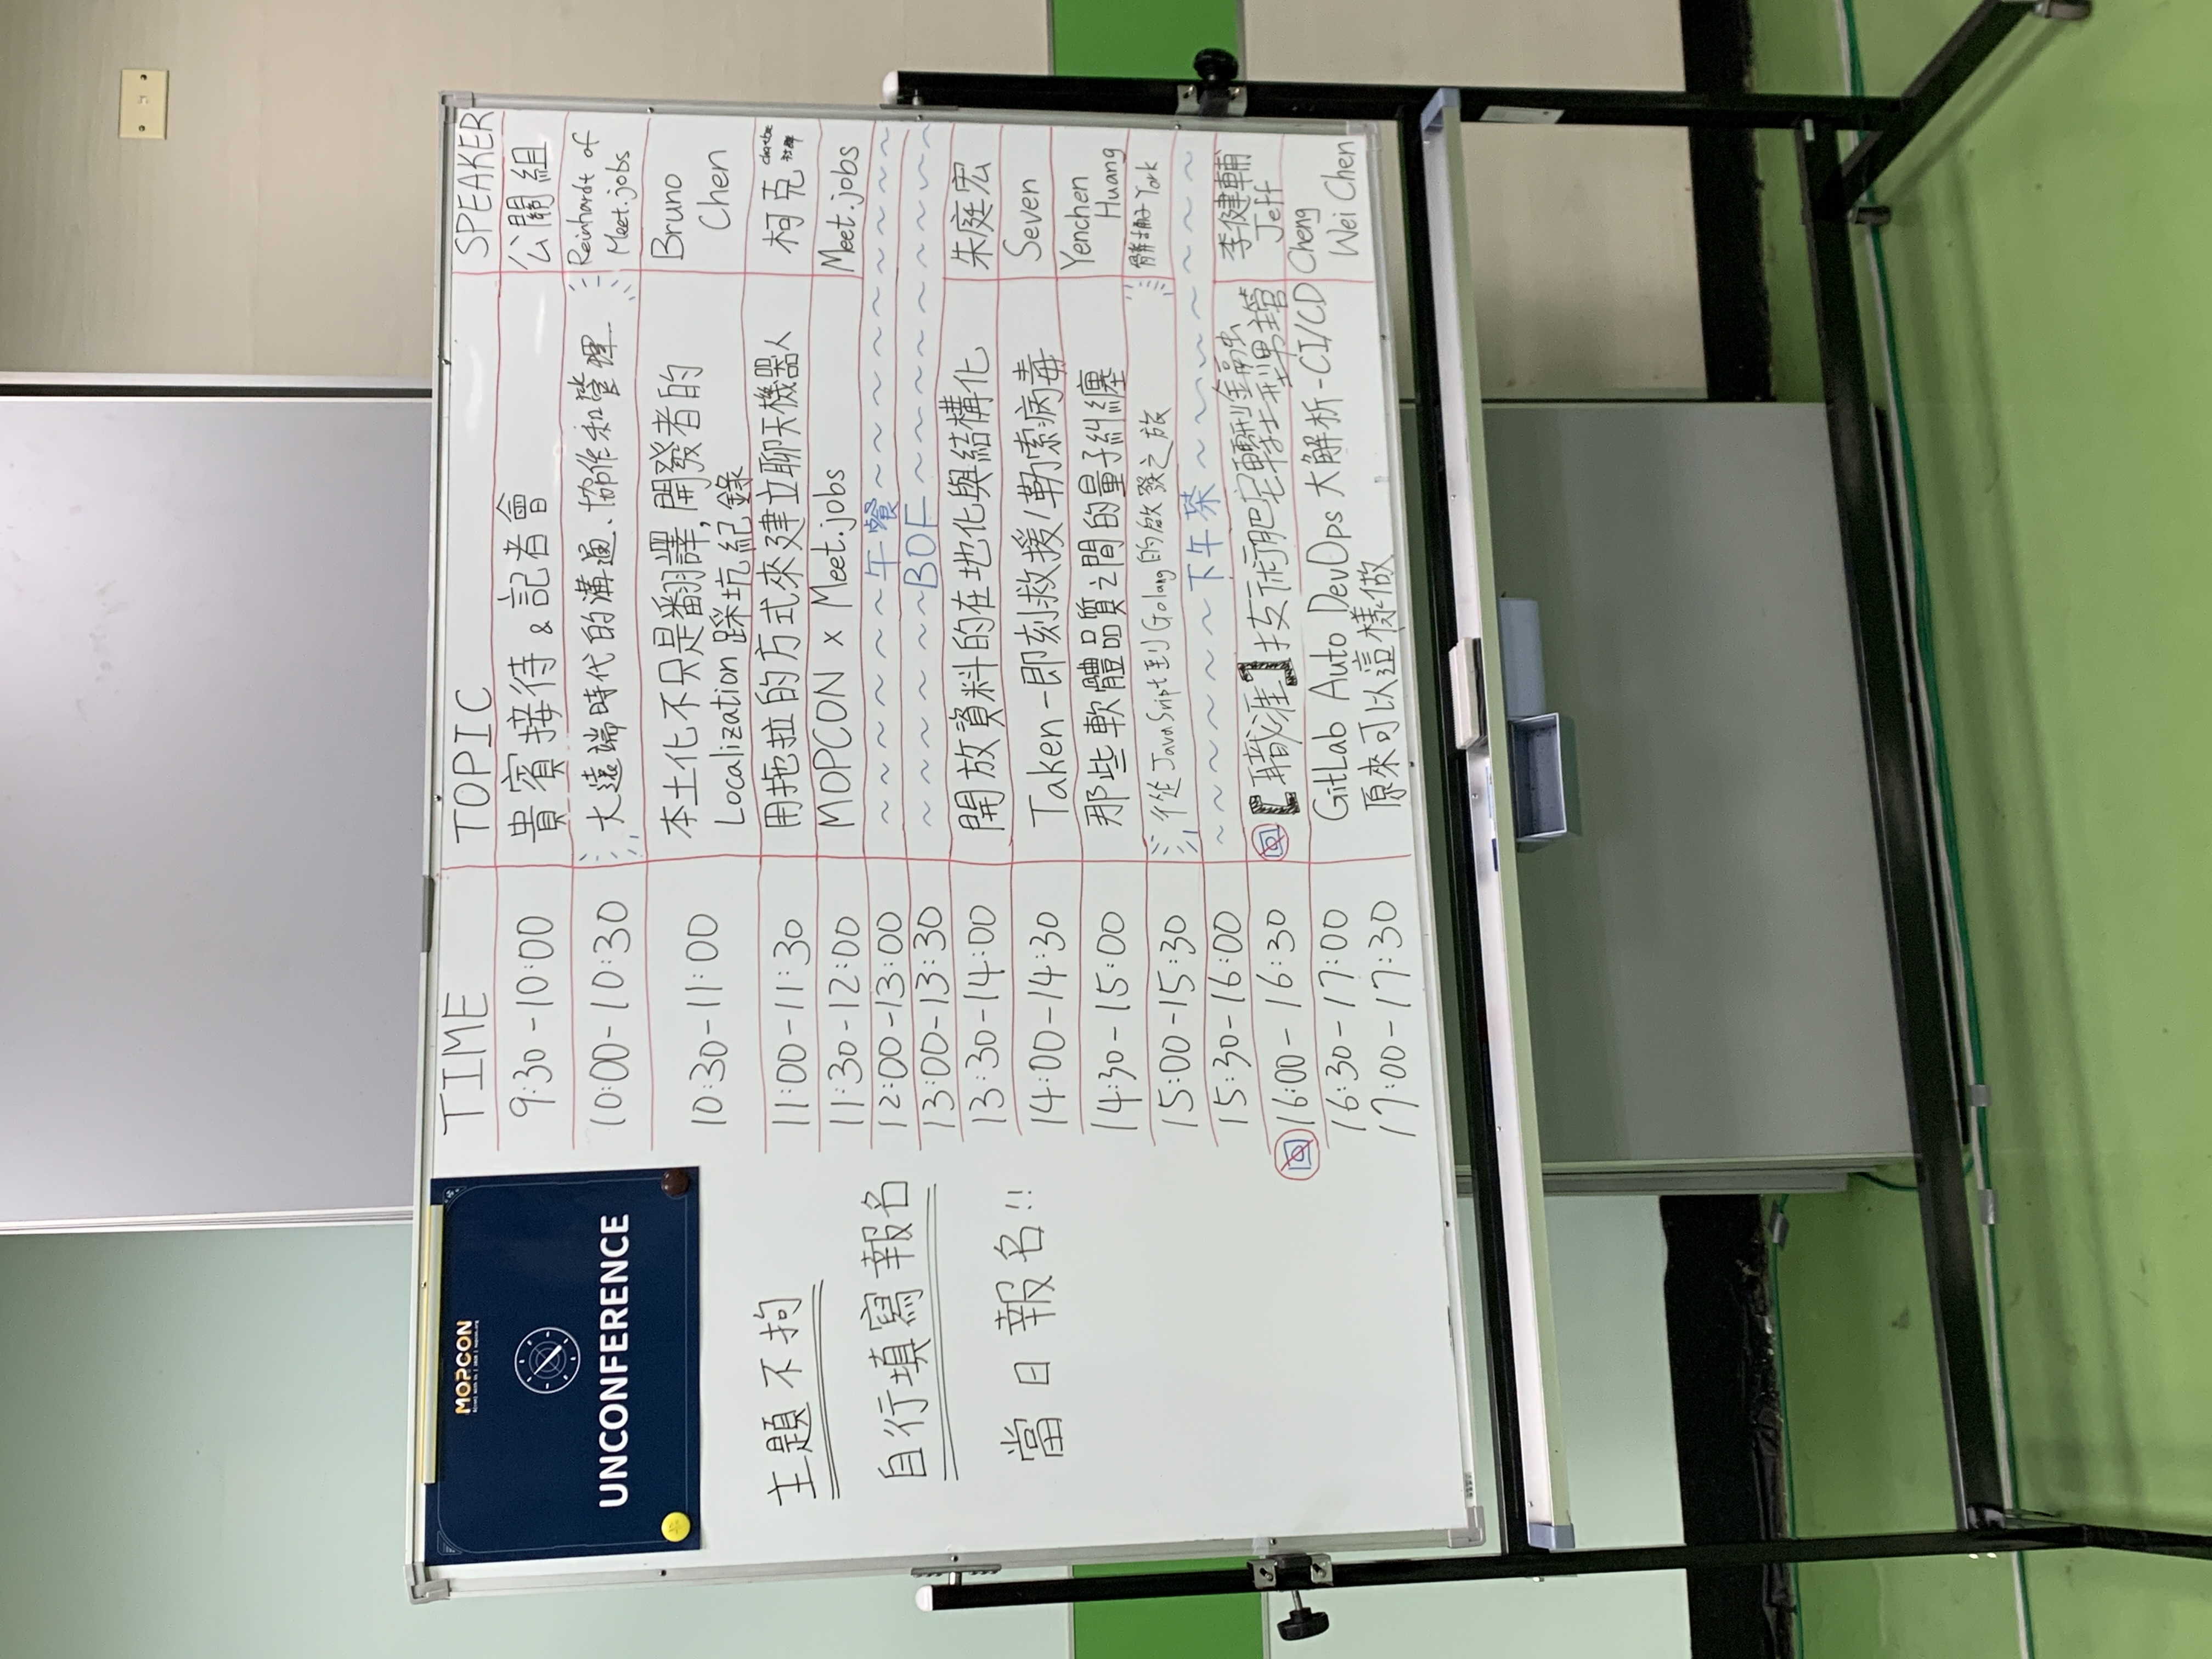 MOPCON
UNCONFERENCE
主題不拘
自行填寫報名
當日報名!!
TIME TOPIC SPEAKER
9:30-10:00 貴賓接待 & 記者會 公關組
10:00-10:30 大遠端時代的溝通、協作和管理 Reinhardt of
Meet.jobs
10:30-11:00 本土化不只是翻譯,開發者的 Bruno
Localization踩坑紀錄 Chen
11:00-11:30 用拖拉的方式來建立聊天機器人 柯克
11:30-12:00 MOPCON x Meet.jobs Meet.jobs
12:00-13:00 午餐
13:00-13:30 BOF
13:30-14:00 開放資料的在地化與結構化 朱庭宏
14:00-14:30 Taken-即刻救援/勒索病毒 Seven
14:30-15:00 那些軟體品質之間的量子糾纏 Yenchen
Huang
15:00-15:30 從JavaScript到Golang的啟發之旅 York
15:30-16:00 下午茶
16:00-16:30 【職涯】技術肥宅轉到金融業 李健輔
Jeff
16:30-17:00 GitLab Auto DevOps 大解析-CI/CD Cheng
17:00-17:30 原來可以這樣做 Wei Chen